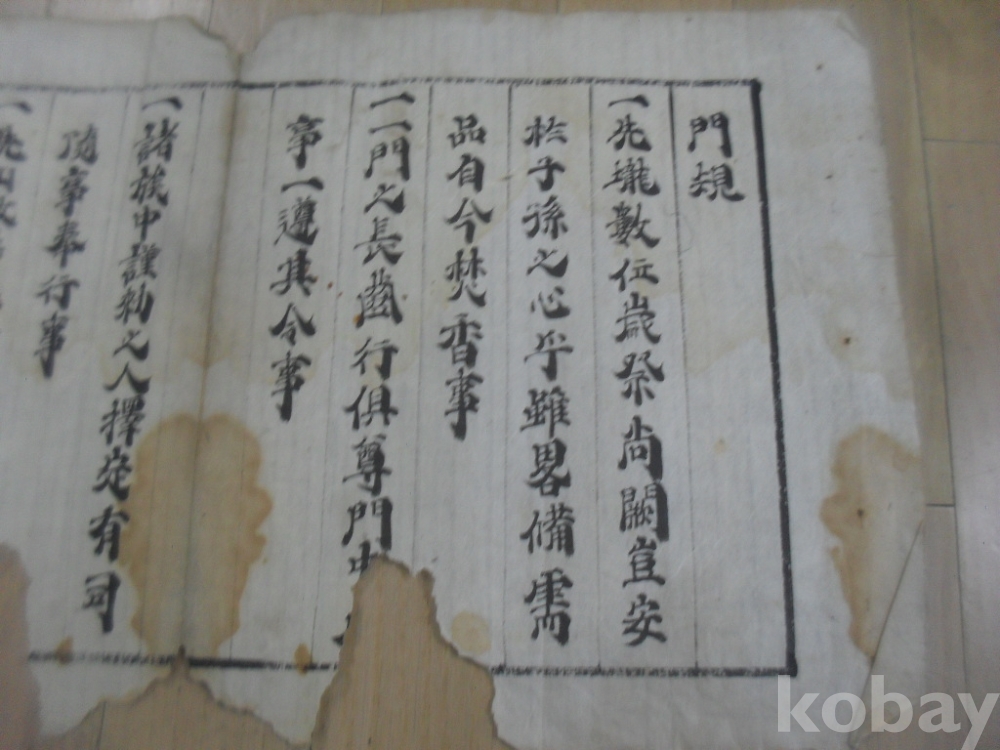 門規
一先壠數位歲祭尚闕豈安
於子孫之心乎雖畧備需
品自今焚香事
一一門之長齒行俱尊門中
事一遵其令事
一諸族中謹勅之人擇定有司
隨事奉行事
一
kobay